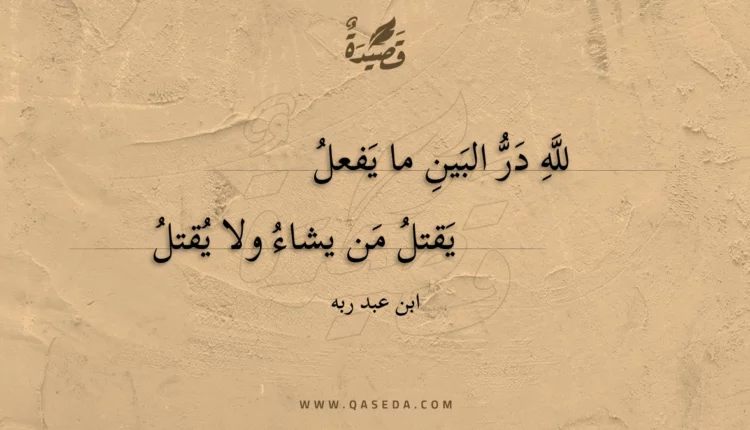 قَصِيْدَةٌ
للَّهِ دَرُّ البَينِ ما يَفعلُ
يَقتلُ مَن يشاءُ ولا يُقتلُ
ابن عبد ربه
WWW.QASEDA.COM